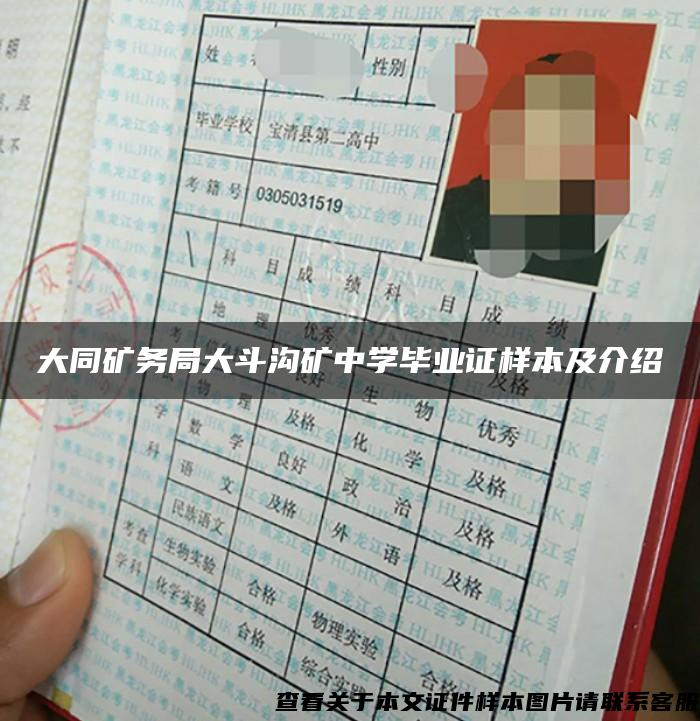 明
经
不
姓 性别
毕业学校 宝清县第二高中
考籍号 0305031519
科目 成绩 科目 成绩
地理 优秀
大同矿务局大斗沟矿中学毕业证样本及介绍
物理 良好 生物 优秀
数学 及格 化学 及格
语文 良好 政治 及格
民族语文 及格 外语 及格
考查学科 生物实验 合格 物理实验 合格
化学实验 合格 综合实
黑龙江会考 HLJHK
查看关于本文证件样本图片请联系客服